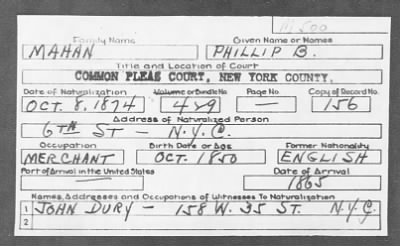 M 500
Family Name Given Name or Names
MAHAN PHILLIP B.
Title and Location of Court
COMMON PLEAS COURT, NEW YORK COUNTY.
Date of Naturalization Volume or Bundle No. Page No. Copy of Record No.
OCT. 8, 1874 449 — 156
Address of Naturalized Person
6TH ST — N.Y.C.
Occupation Birth Date or Age Former Nationality
MERCHANT OCT. 1850 ENGLISH
Port of Arrival in the United States Date of Arrival
1865
Names, Addresses and Occupations of Witnesses To Naturalization
1 JOHN DURY — 158 W. 35 ST. N.Y.C.
2